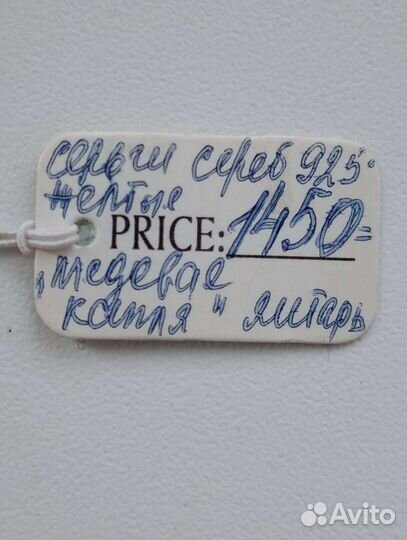 серьги сереб 925°
желтые
PRICE: 1450=
"медовая
капля" янтарь
Avito